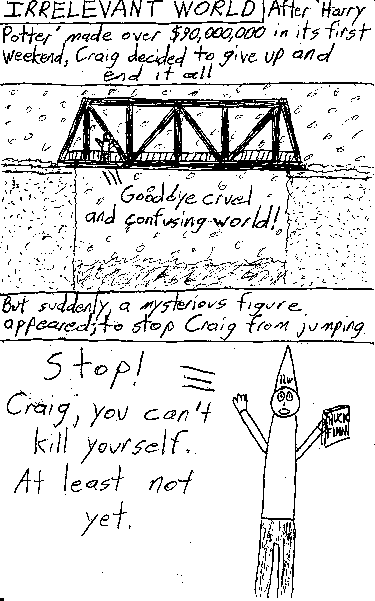 IRRELEVANT WORLD After 'Harry
Potter' made over $90,000,000 in its first
weekend, Craig decided to give up and
end it all
Goodbye cruel
and confusing world!
But suddenly, a mysterious figure
appeared, to stop Craig from jumping
Stop!
Craig, you can't
kill yourself.
At least not
yet.
HUCK
FINN